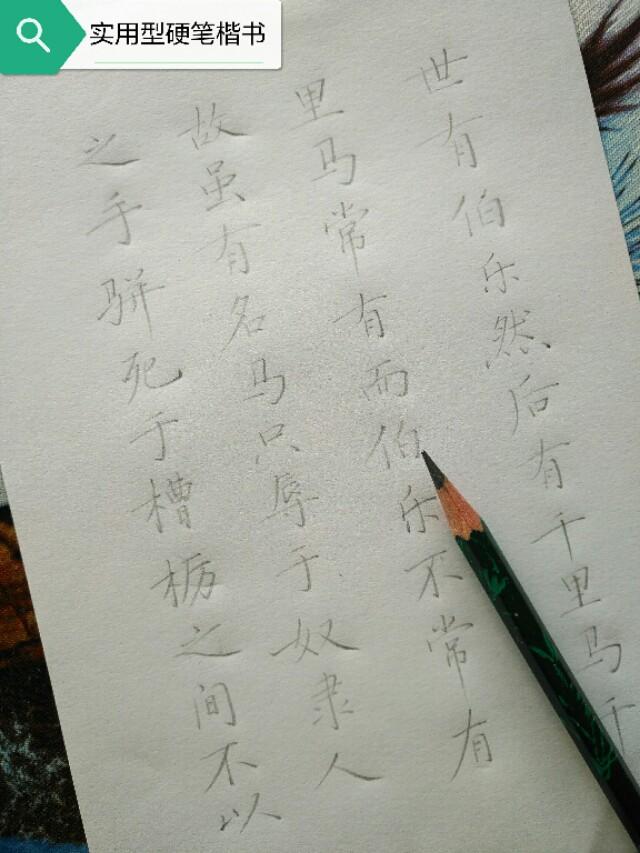 实用型硬笔楷书
世有伯乐然后有千里马千
里马常有而伯乐不常有
故虽有名马只辱于奴隶人
之手骈死于槽枥之间不以